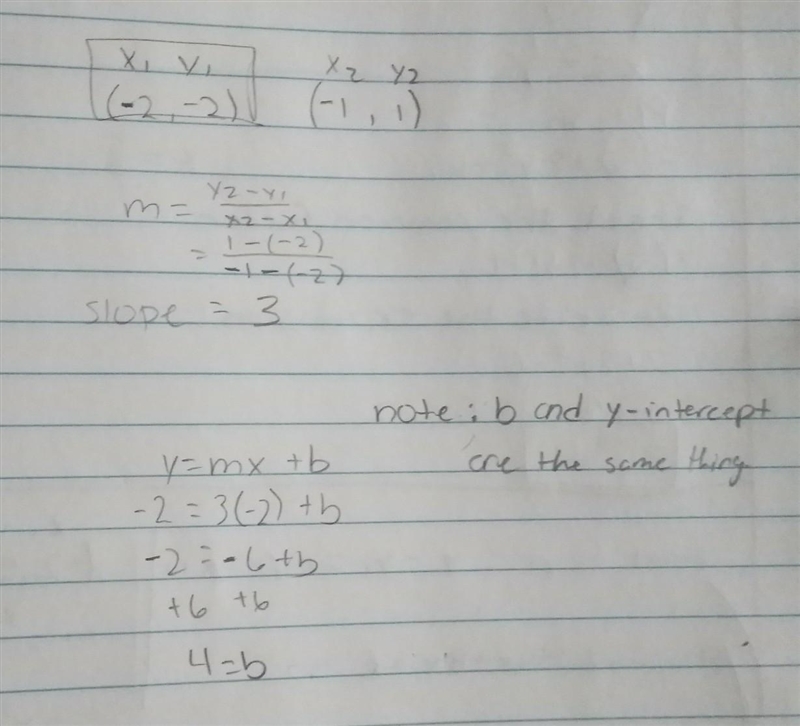 x₁ y₁ x₂ y₂
(-2, -2) (-1, 1)
m = y₂-y₁/x₂-x₁
= 1-(-2)/-1-(-2)
slope = 3
note: b and y-intercept
are the same thing
y=mx+b
-2=3(-2)+b
-2=-6+b
+6 +6
4=b